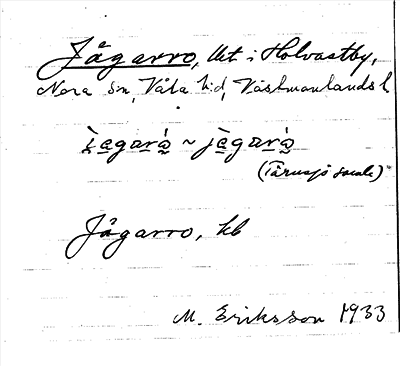 Jågarro, llet i Holvastby,
Nora sn, Våla hd, Västmanlands l
(Tärnsjö socale)
Jågarro, kb
M. Eriksson 1933